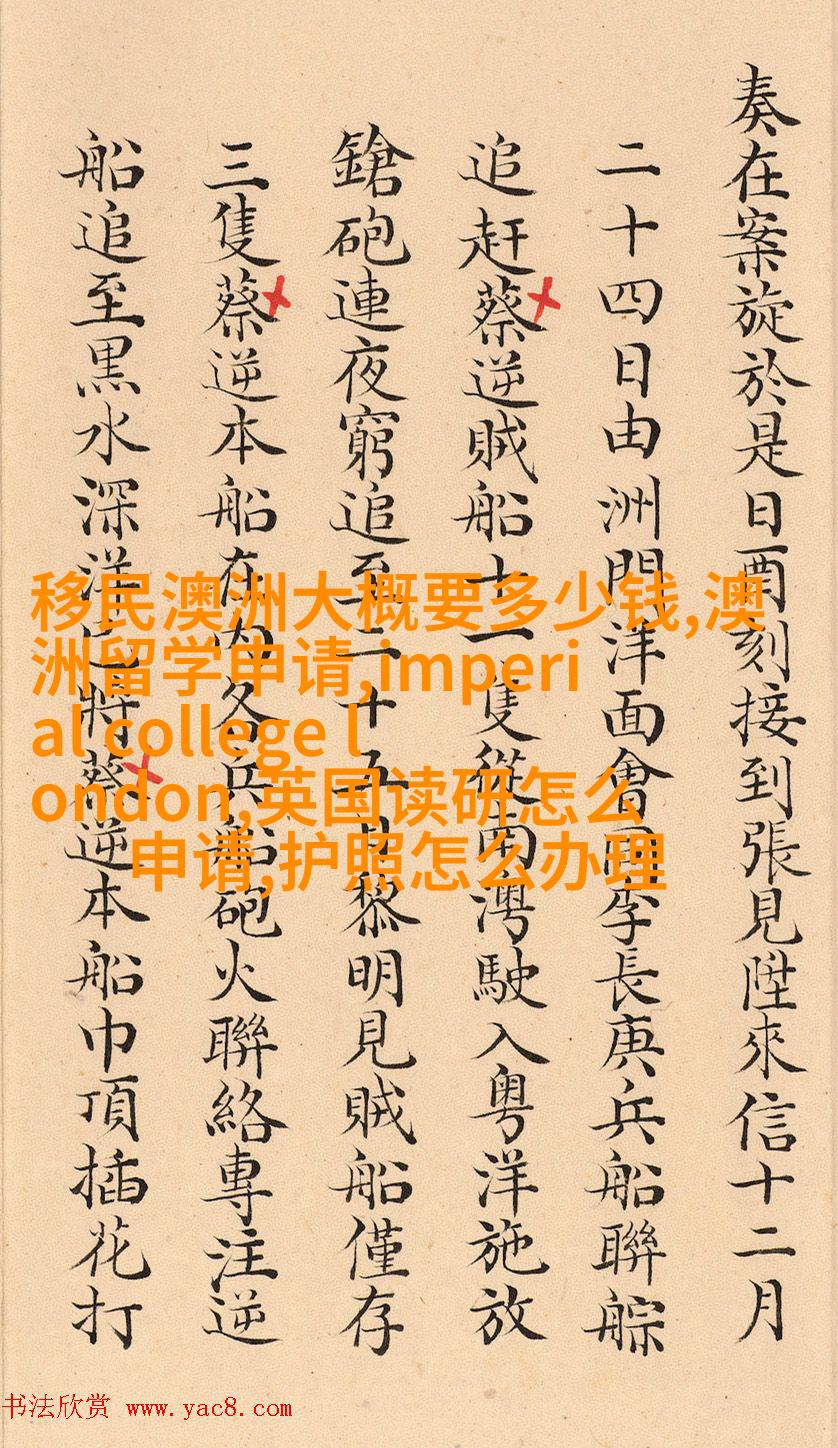 奏在案旋於是日酉刻接到張見陞來信十二月
二十四日由洲門洋面會同李長庚兵船聯䑸
追赶蔡逆賊船十一隻從南灣駛入粤洋施放
鎗砲連夜窮追至二十五日黎明見賊船僅存
三隻蔡逆本船在內各兵船砲火聯絡專注逆
船追至黑水深洋已將蔡逆本船巾頂插花打
移民澳洲大概要多少钱,澳
洲留学申请,imperi
al college l
ondon,英国读研怎么
申请,护照怎么办理
书法欣赏 www.yac8.com